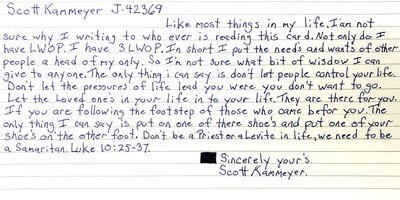 Scott Kammeyer J-42369
Like most things in my life, I am not
sure why I writing to who ever is reading this card. Not only do I
have LWOP. I have 3 LWOP. In short I put the need's and wants of other
people a head of my only. So I'm not sure what bit of wisdow I can
give to anyone. The only thing i can say is don't let people control your life.
Don't let the pressures of life lead you were you don't want to go.
Let the Loved one's in your life in to your life. They are there for you.
If you are following the footstep of those who came befor you. The
only thing I can say is put on one of there shoe's and put one of your
shoe's on the other foot. Don't be a Priest or a Levite in life, we need to be
a Samaritan. Luke 10:25-37.
Sincerely your's.
Scott Kammeyer.